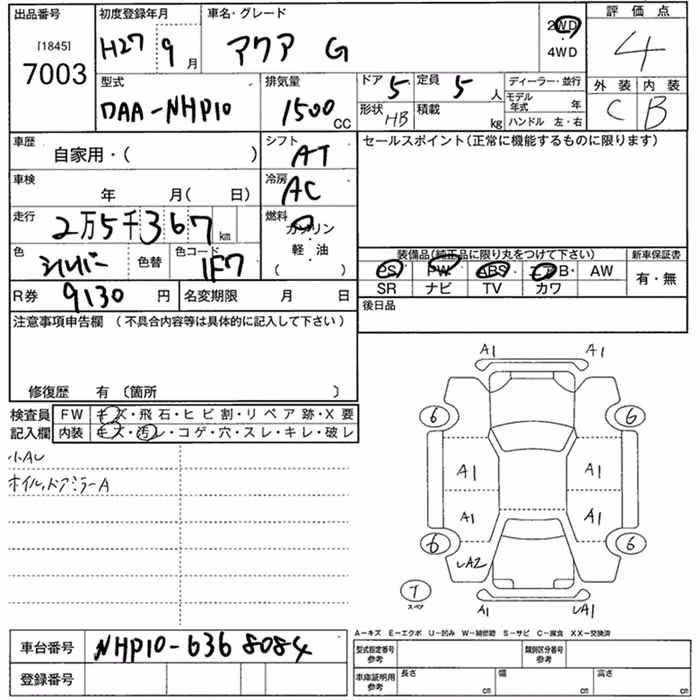 出品番号
[1845]
7003
初度登録年月
H27 9 月
車名・グレード
アクア G
2WD
4WD
評価点
4
外装 内装
C B
型式
DAA-NHP10
排気量
1500 CC
ドア 5 定員 5 人
形状 HB 積載 kg
ディーラー・並行
モデル年式 年
ハンドル 左・右
車歴
自家用・( )
シフト AT
セールスポイント(正常に機能するものに限ります)
車検 年 月( 日)
冷房 AC
走行 2万5千367 km
燃料
ガソリン
・
軽・油
( )
色 シルバー 色替 色コード 1F7
装備品(純正品に限り丸をつけて下さい) 新車保証書
PS PW ABS エアB・ AW 有・無
SR ナビ TV カワ
R券 9130 円 名変期限 月 日
後日品
注意事項申告欄 (不具合内容等は具体的に記入して下さい)
修復歴 有 〔箇所 〕
検査員 FW キズ・飛石・ヒビ割・リペア跡・X要
記入欄 内装 キズ・汚レ・コゲ・穴・スレ・キレ・破レ
小AU
ホイル、ドアミラーA
A1 A1
6 6
A1 A1
A1 A1
6 6
UA2
T
スペア
A1 UA1
A-キズ E-エクボ U-凹み W-補修跡 S-サビ C-腐食 XX-交換済
車台番号 NHP10-6368084
型式指定番号 参考 類別区分番号 参考
登録番号
車庫証明用 参考 長さ cm 幅 cm 高さ cm